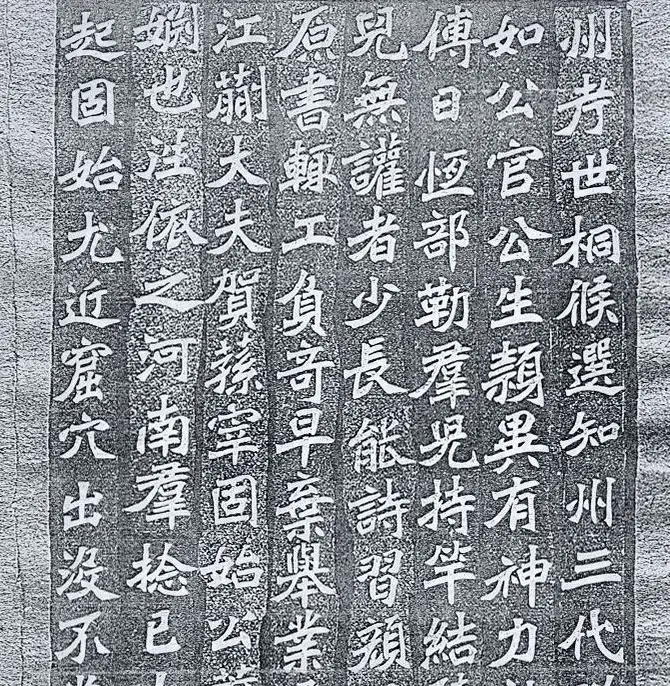 州考世桐候選知州三代
如公官公生穎異有神力
傅日恆部勒羣兒持竿結
兒無讙者少長能詩習顏
原書輒工負奇早棄舉業
江蒯大夫賀蓀宰固始公
婣也往依之河南羣捻已
起固始尤近窟穴出沒不